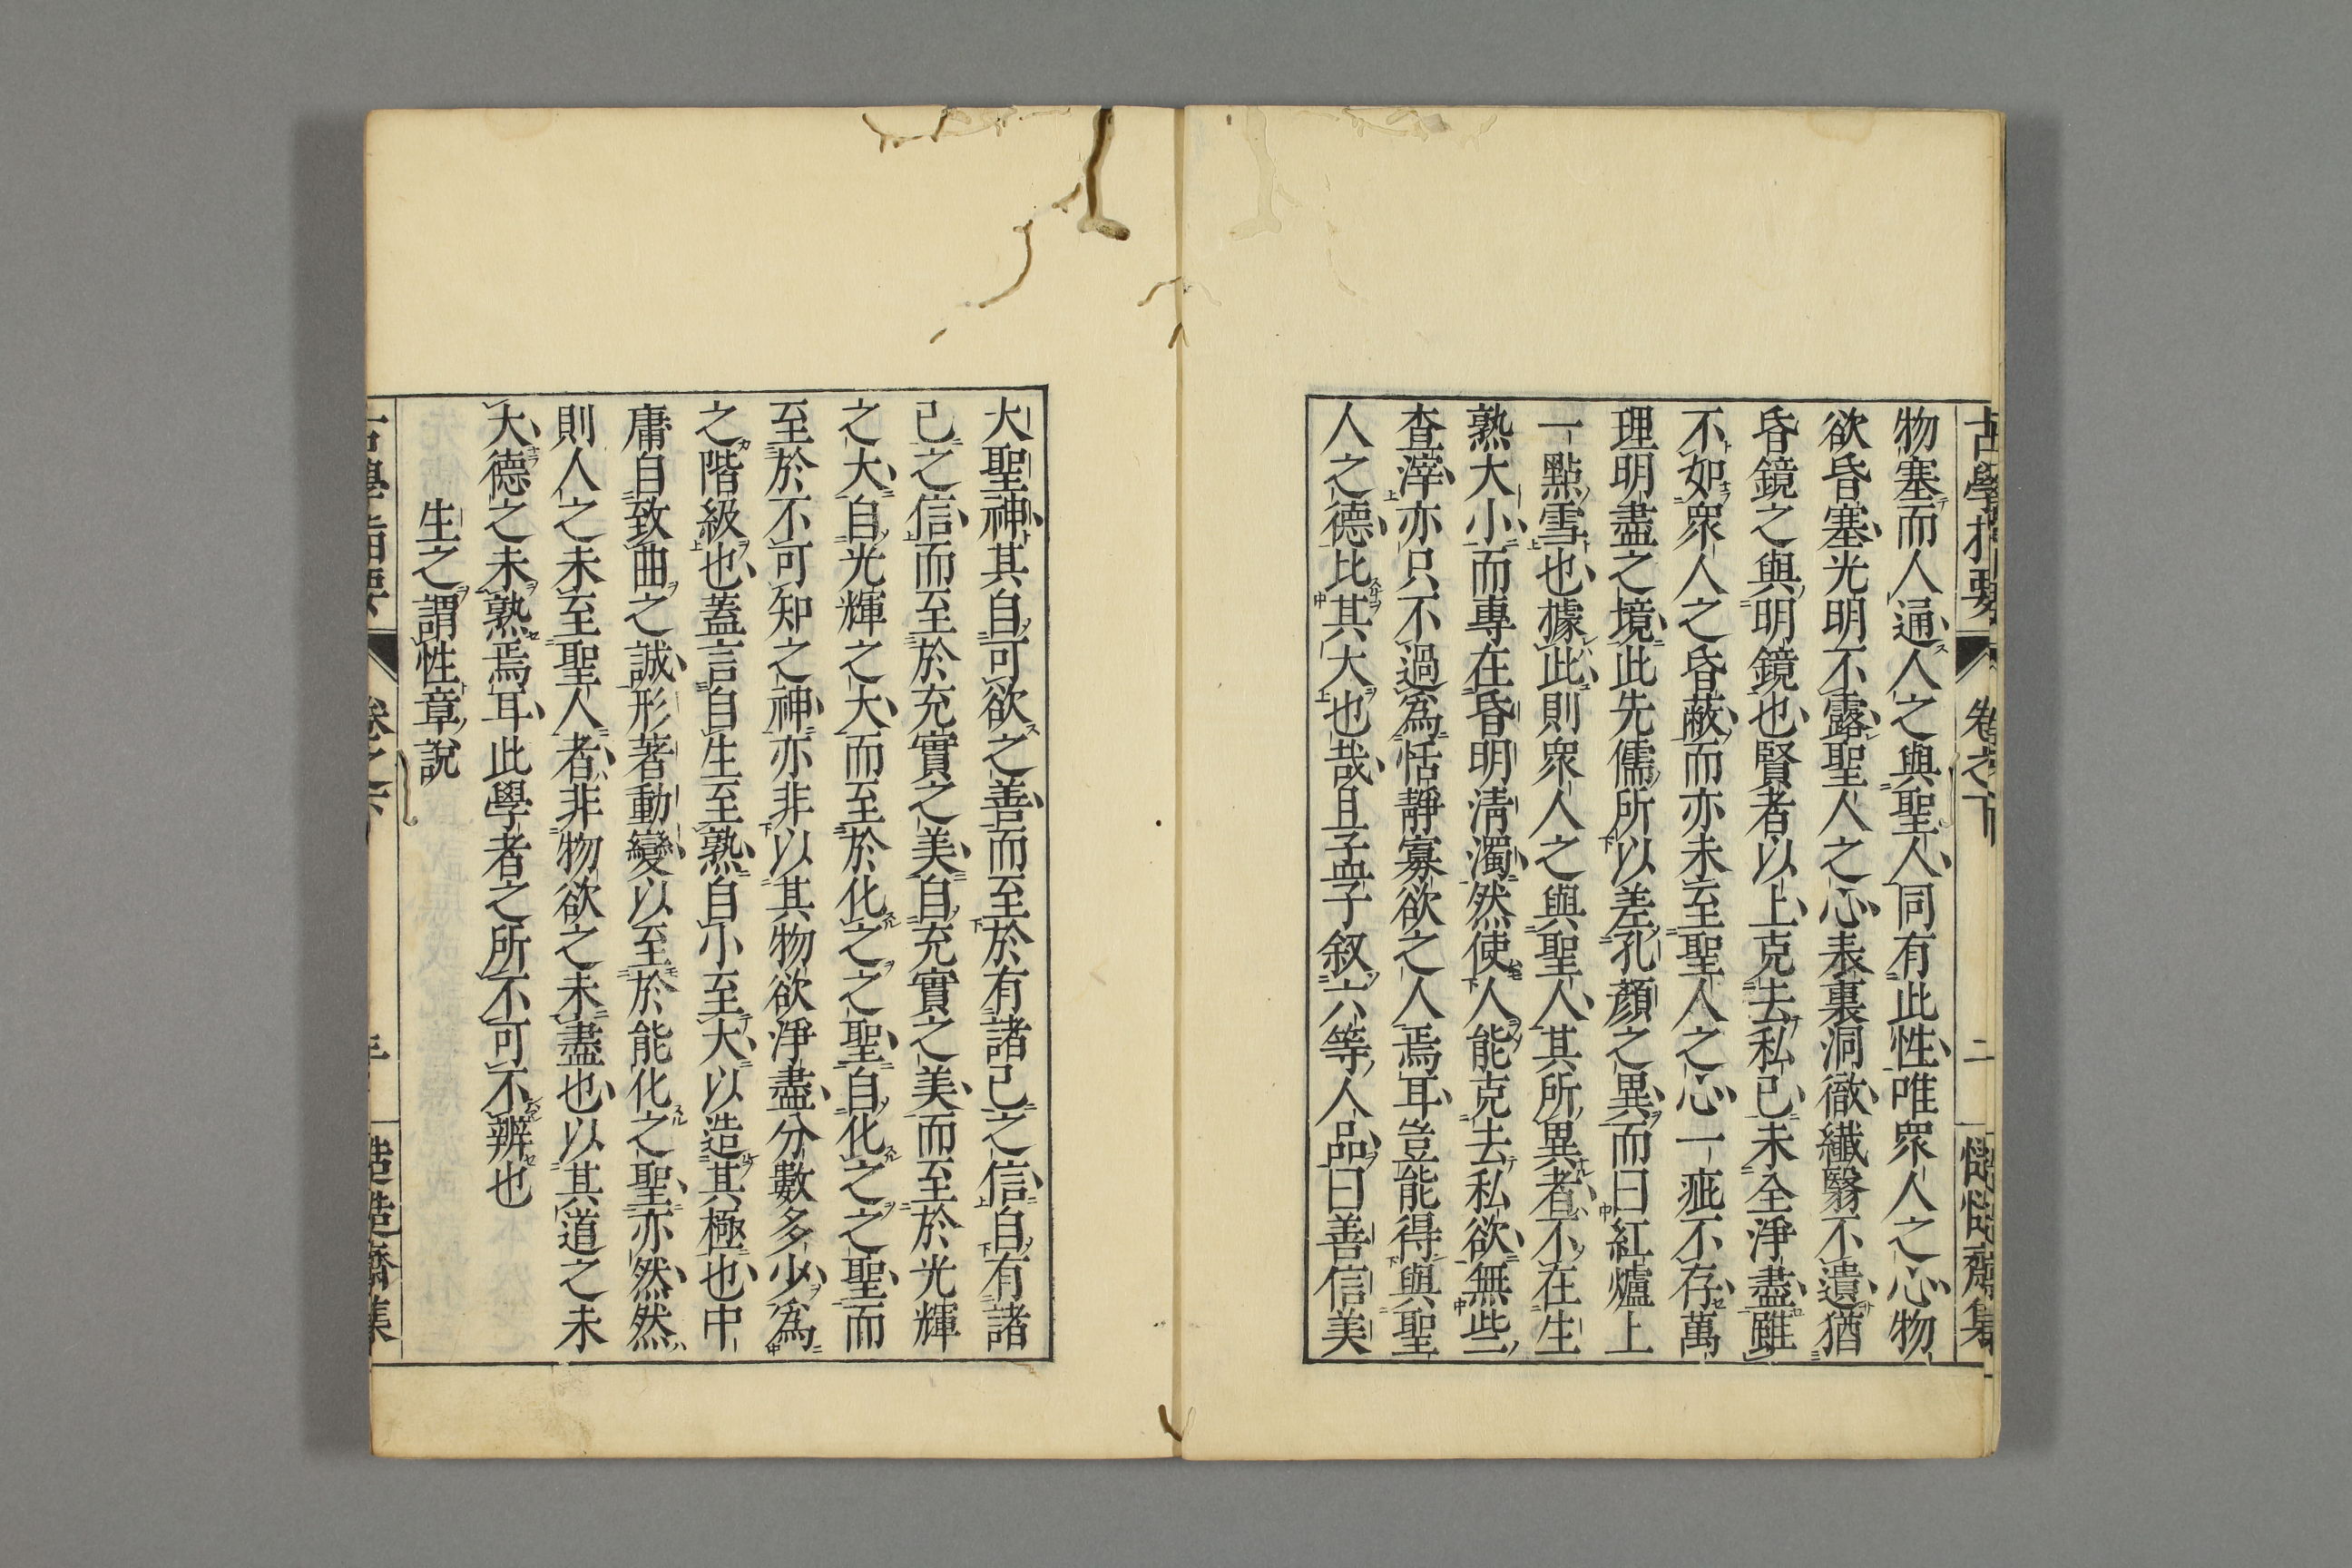 古學指要 卷之下 二
物塞而人通人之與聖人同有此性唯衆人之心物
欲昏塞光明不露聖人之心表裏洞徹纖翳不遺猶
昏鏡之與明鏡也賢者以上克去私已未全淨盡雖
不如衆人之昏蔽而亦未至聖人之心一疵不存萬
理明盡之境此先儒所以差孔顏之異而曰紅爐上
一點雪也據此則衆人之與聖人其所異者不在生
熟大小而專在昏明淸濁然使人能克去私欲無些
査滓亦只不過爲恬靜寡欲之人焉耳豈能得與聖
人之德比其大也哉且孟子叙六等人品曰善信美
大聖神其自可欲之善而至於有諸己之信自有諸
己之信而至於充實之美自充實之美而至於光輝
之大自光輝之大而至於化之之聖自化之之聖而
至於不可知之神亦非以其物欲淨盡分數多少爲
之階級也蓋言自生至熟自小至大以造其極也中
庸自致曲之誠形著動變以至於能化之聖亦然然
則人之未至聖人者非物欲之未盡也以其道之未
大德之未熟焉耳此學者之所不可不辨也
生之謂性章說